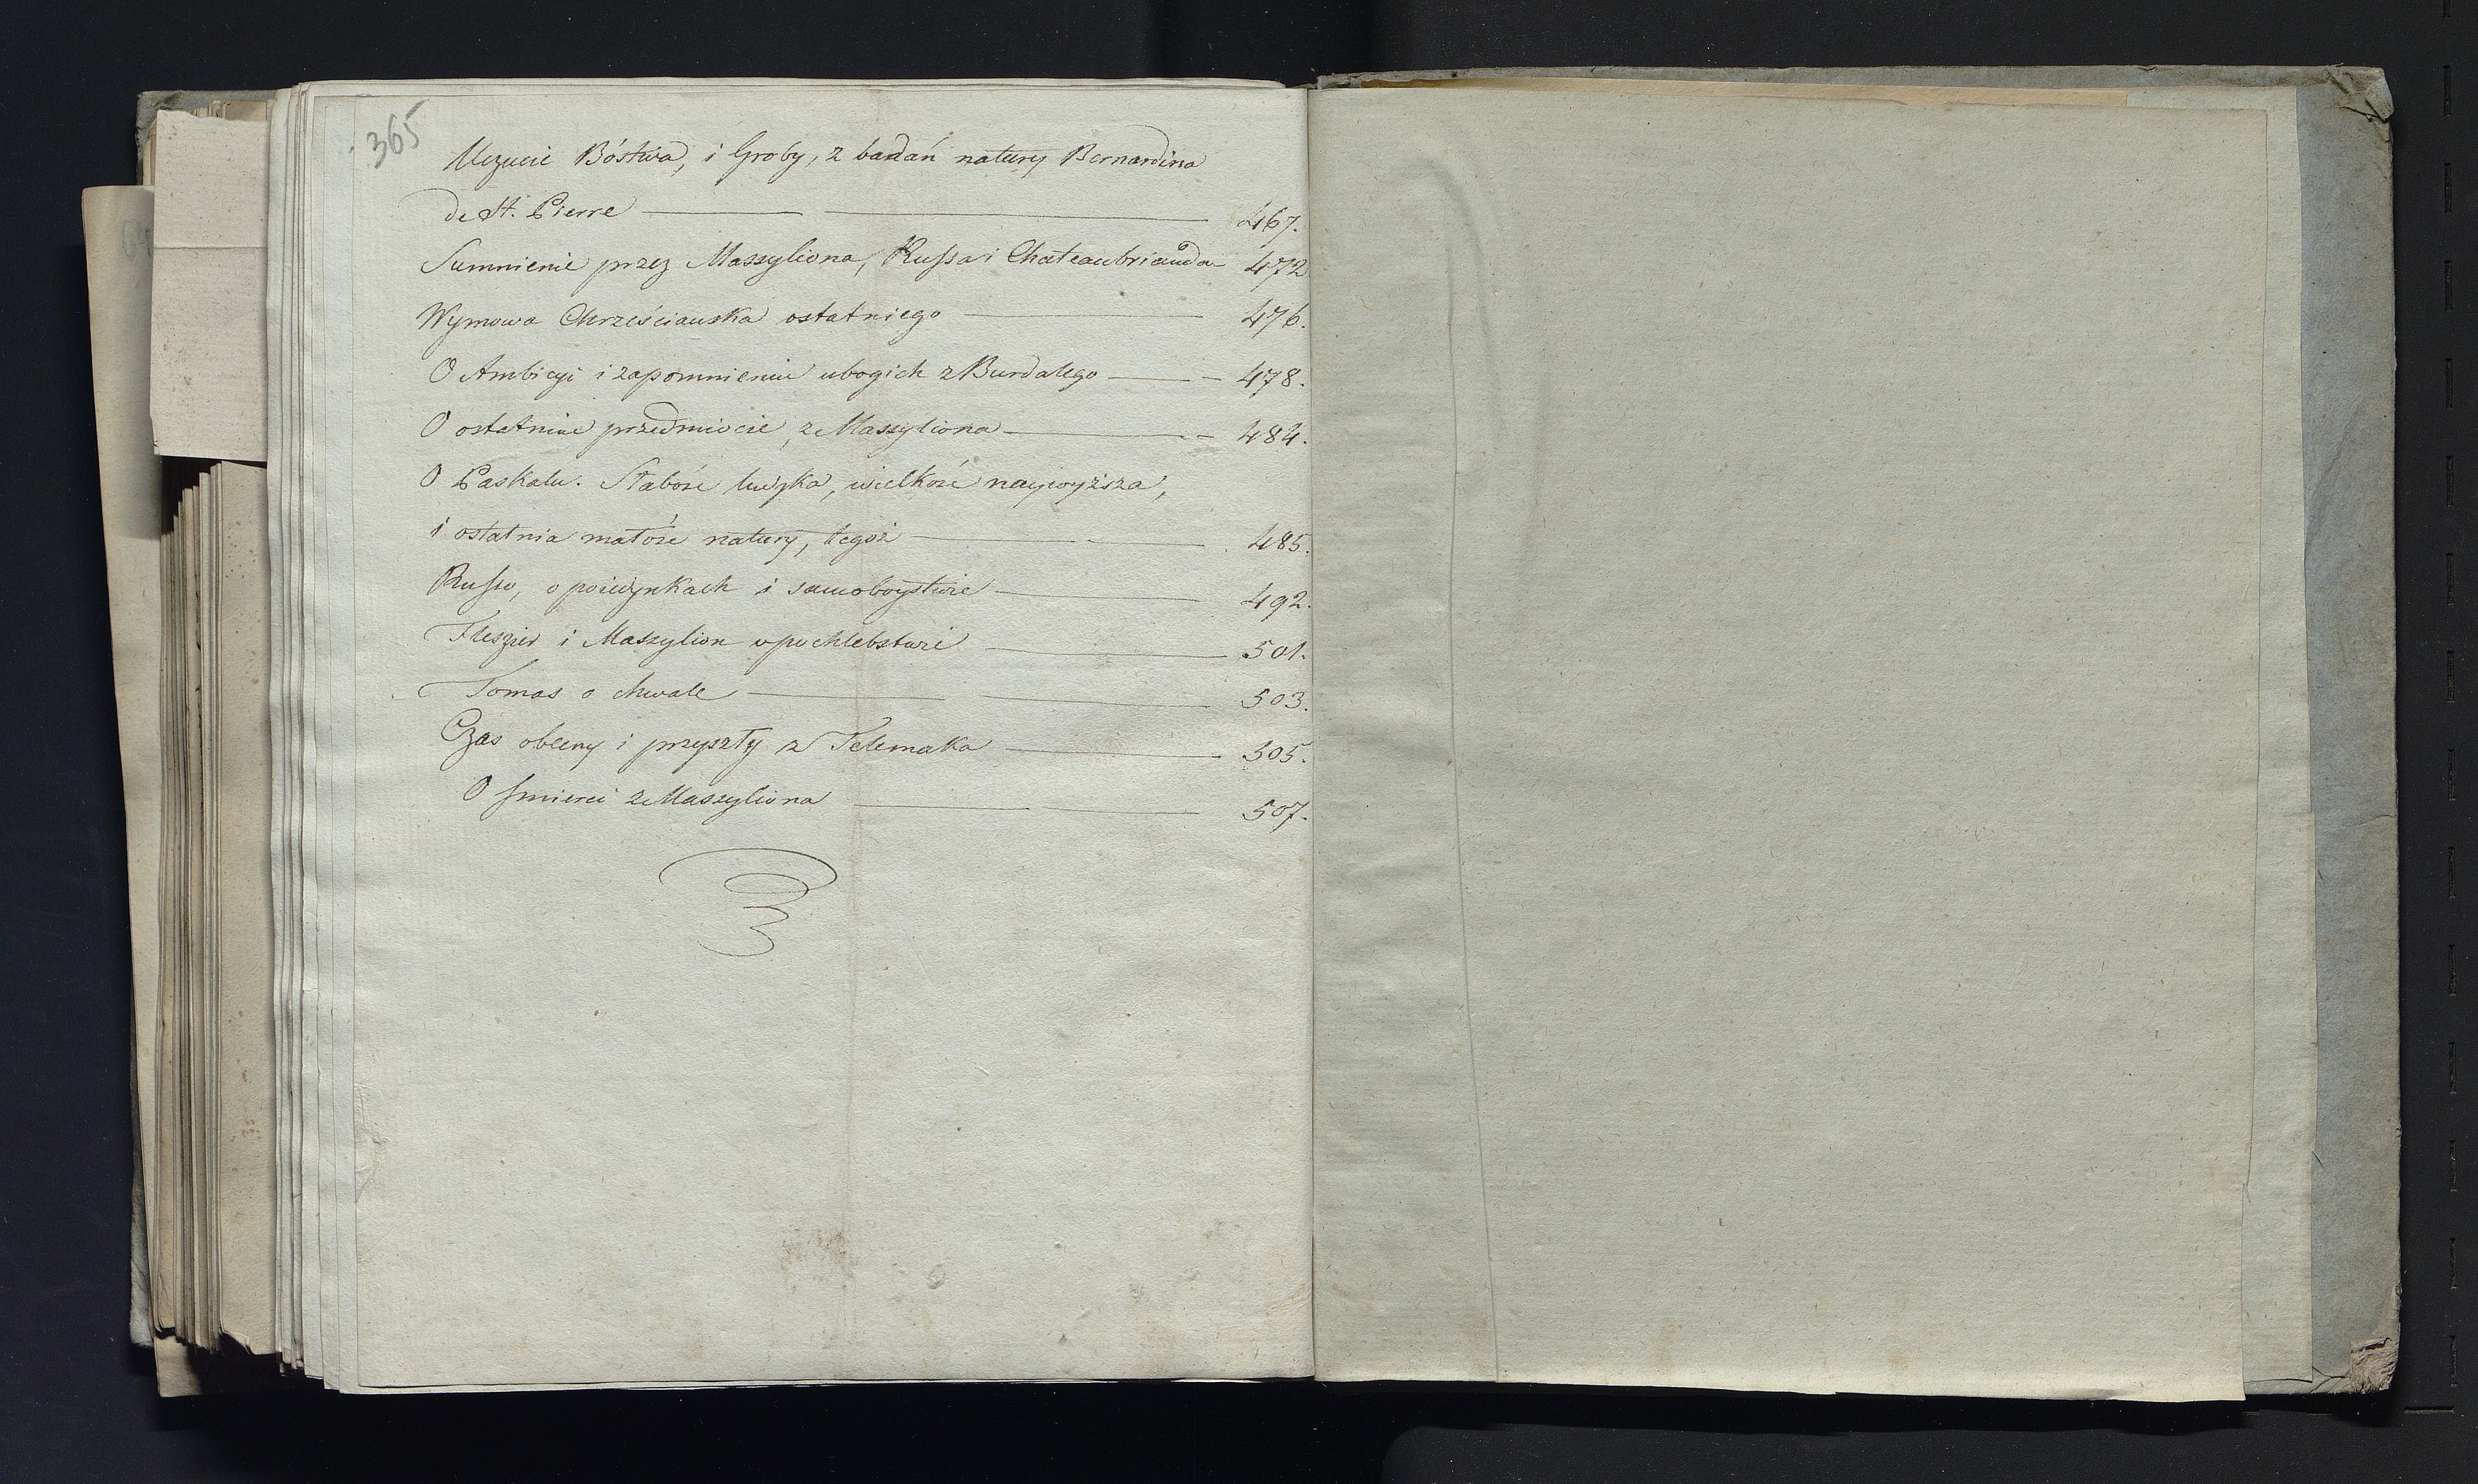 365
Uczucie Bóstwa, i Groby, z badań natury Bernardina
de St. Pierre — — 467.
Sumnienie przez Massyliona, Russa i Chateaubrianda 472
Wymowa Chrześcianska ostatniego — 476.
O Ambicyi i zapomnieniu ubogich z Burdalego — — 478.
O ostatnim przedmiocie, z Massyliona — — 484.
O Paskalu. Słabość ludzka, wielkość naywyższa,
i ostatnia małość natury, tegoż — — 485.
Russo, o poiedynkach i samobóystwie — 492.
Fleszier i Massylion o pochlebstwie — 501.
Tomas o chwale — — 503.
Czas obecny i przyszły z Telemaka — 505.
O śmierci z Massyliona — — 507.